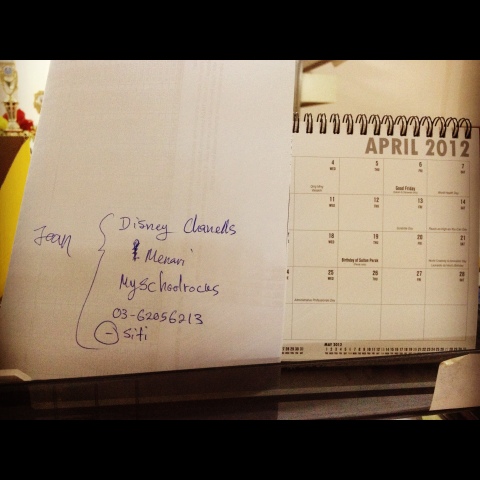 Jean
Disney Chanells
Menari
Myschoolrocks
03-62056213
Siti
APRIL 2012
4 WED
5 THU
6 FRI
7 SAT
Good Friday
11 WED
12 THU
13 FRI
14 SAT
18 WED
19 THU
20 FRI
21 SAT
Birthday of Sultan Perak
25 WED
26 THU
27 FRI
28 SAT
MAY 2012